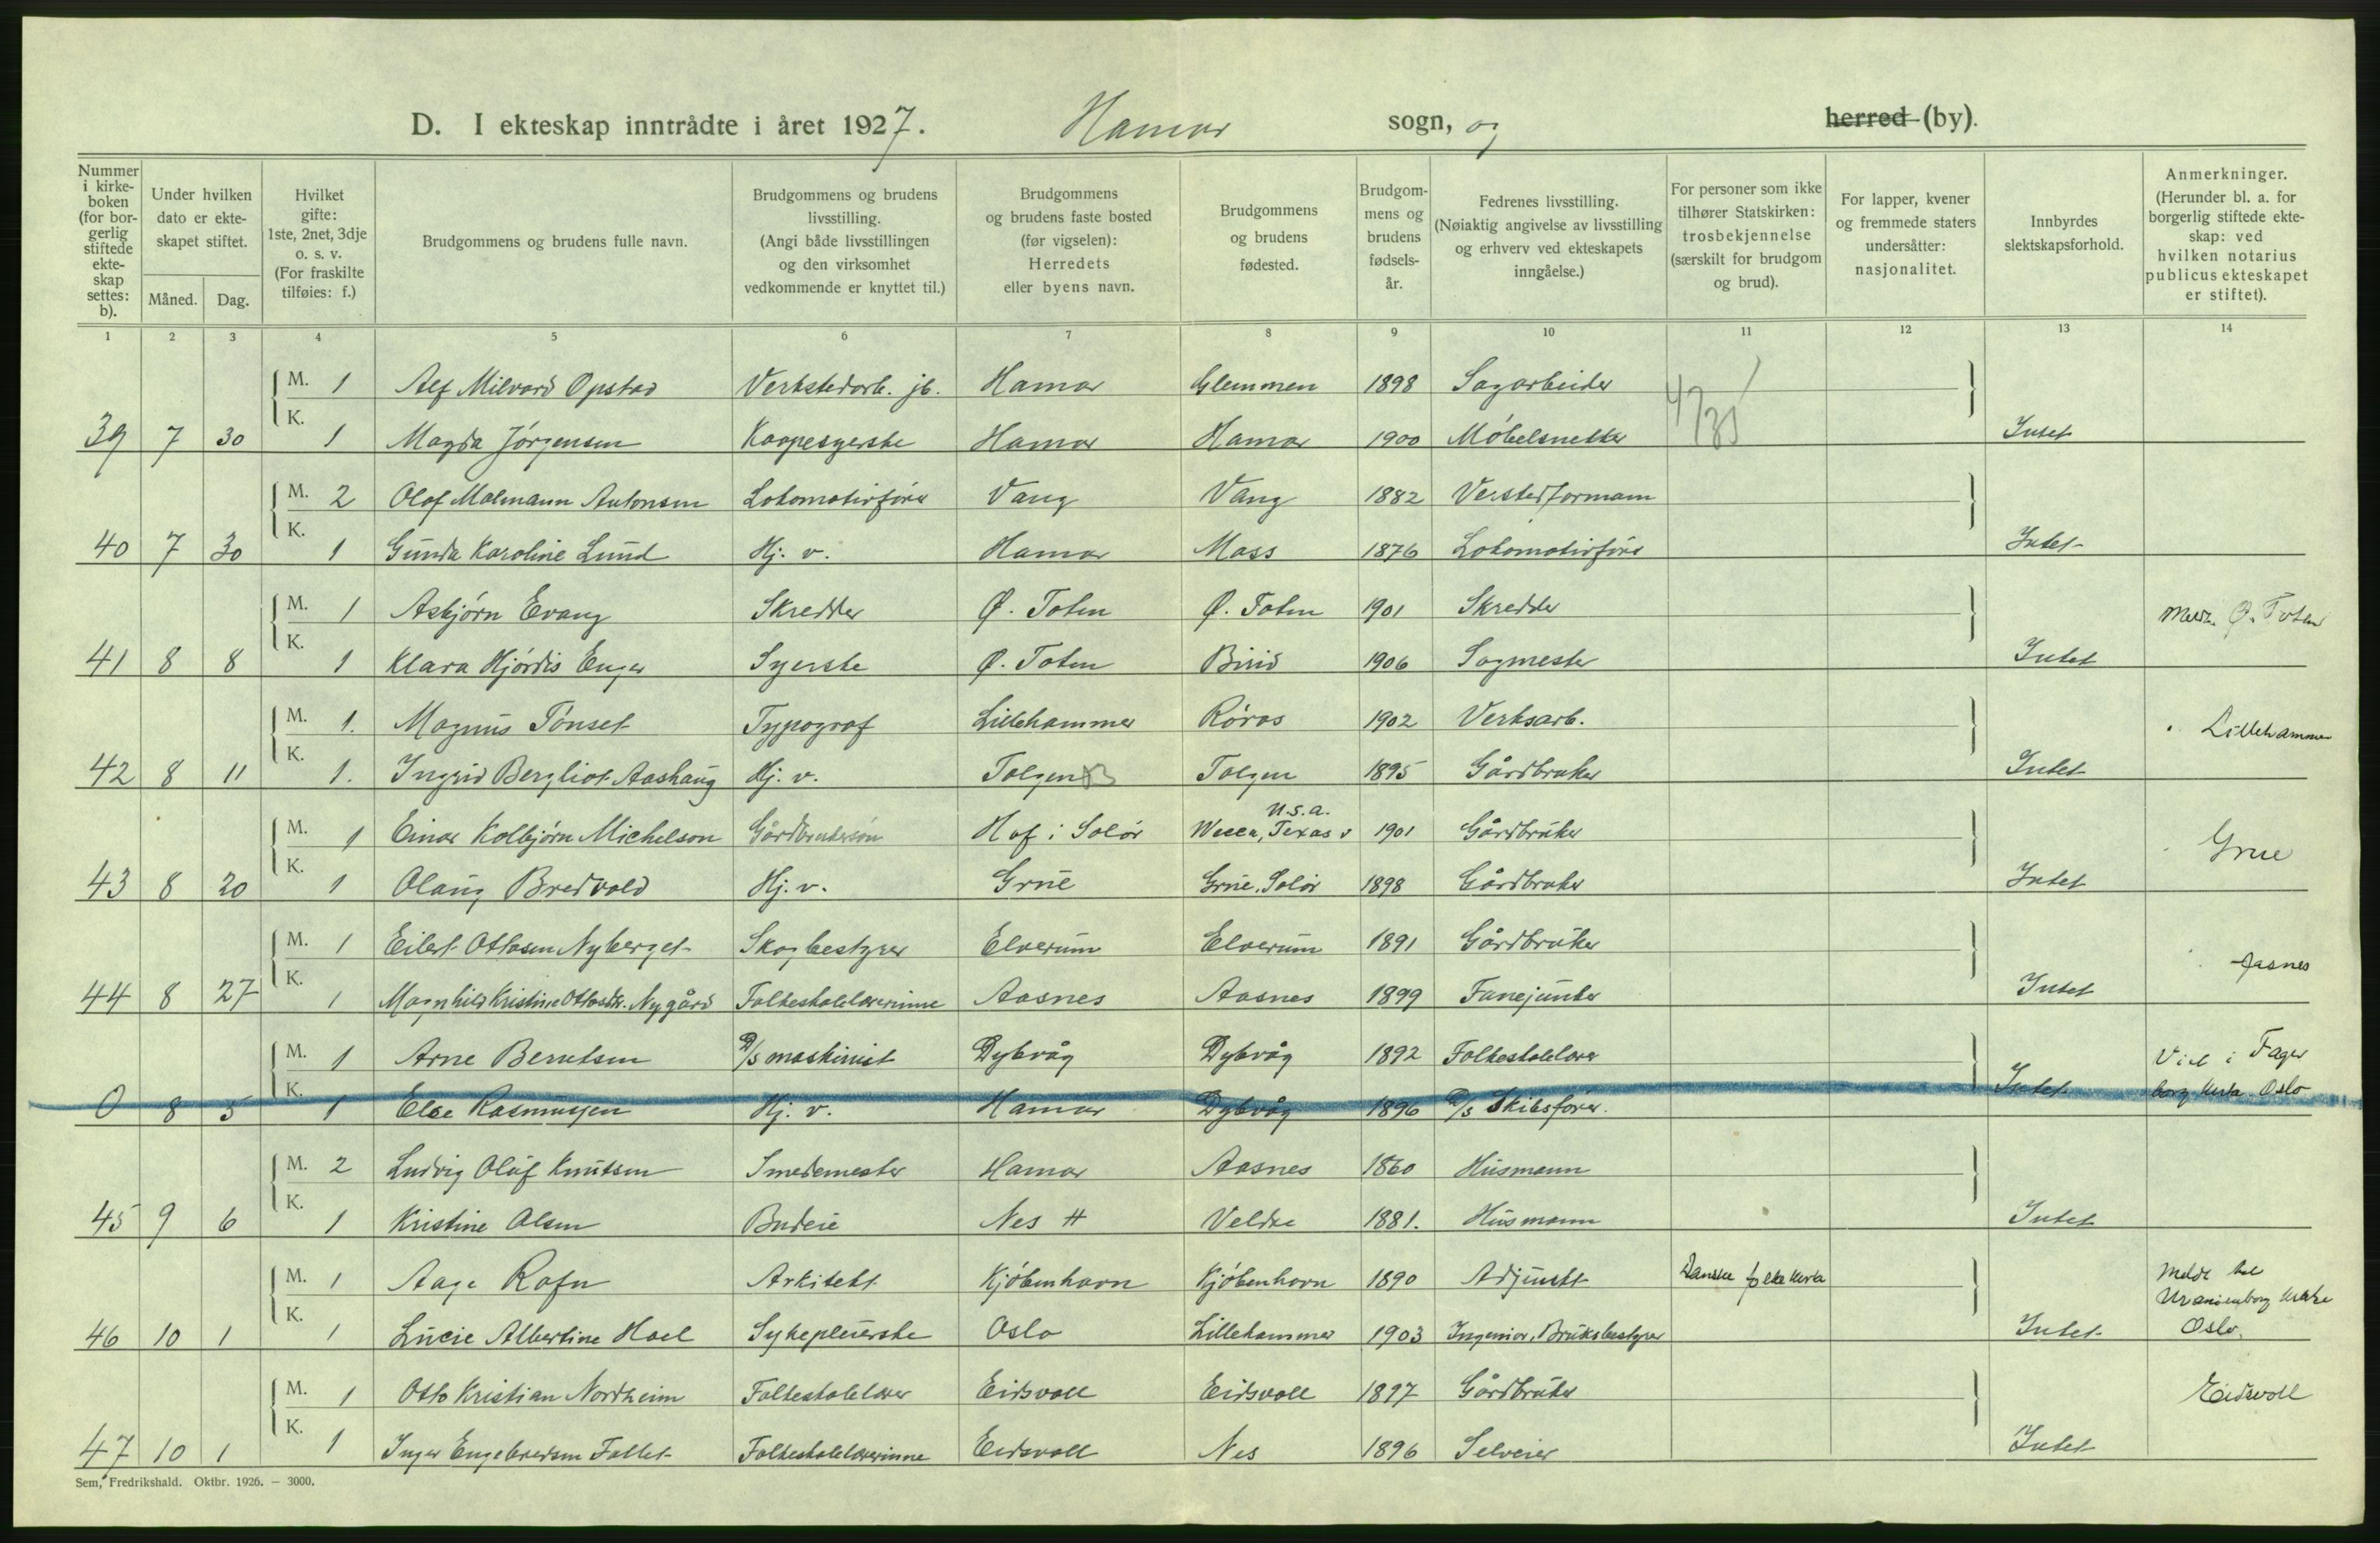 D. I ekteskap inntrådte i året 1927. Hamar sogn, og herred (by).
Nummer i kirkeboken (for borgerlig stiftede ekteskap settes: b).
Under hvilken dato er ekteskapet stiftet.
Måned. Dag.
Hvilket gifte: 1ste, 2net, 3dje o. s. v. (For fraskilte tilføies: f.)
Brudgommens og brudens fulle navn.
Brudgommens og brudens livsstilling. (Angi både livsstillingen og den virksomhet vedkommende er knyttet til.)
Brudgommens og brudens faste bosted (før vigselen): Herredets eller byens navn.
Brudgommens og brudens fødested.
Brudgommens og brudens fødselsår.
Fedrenes livsstilling. (Nøiaktig angivelse av livsstilling og erhverv ved ekteskapets inngåelse.)
For personer som ikke tilhører Statskirken: trosbekjennelse (særskilt for brudgom og brud).
For lapper, kvener og fremmede staters undersåtter: nasjonalitet.
Innbyrdes slektskapsforhold.
Anmerkninger. (Herunder bl. a. for borgerlig stiftede ekteskap: ved hvilken notarius publicus ekteskapet er stiftet).
1 2 3 4 5 6 7 8 9 10 11 12 13 14
M. 1 Alf Milvard Opstad Verkstedarb. jb. Hamar Glemmen 1898 Sagarbeider
39 7 30 K. 1 Magda Jörgensen Kaapesyerske Hamar Hamar 1900 Möbelsnekker Intet
M. 2 Olof Malmann Antonsen Lokomotivförer Vang Vang 1882 Verstedformann
40 7 30 K. 1 Gunda Karoline Lund Hj. v. Hamar Moss 1876 Lokomotivförer Intet
M. 1 Asbjörn Evang Skredder Ø. Toten Ø. Toten 1901 Skredder Ø. Toten
41 8 8 K. 1 Klara Hjördis Enger Syerske Ø. Toten Birid 1906 Sagmester Intet
M. 1. Magnus Tönset Typograf Lillehammer Röros 1902 Verksarb. Lillehammer
42 8 11 K. 1. Ingrid Bergliot Aashaug Hj. v. Tolgen Tolgen 1895 Gårdbruker Intet
U.S.A.
M. 1 Einar Kolbjörn Michelson Gårdbrukersön Hof i Solör Texas 1901 Gårdbruker Grue
43 8 20 K. 1 Olaug Bredvold Hj. v. Grue Grue, Solör 1898 Gårdbruker Intet
M. 1 Eilert Ottosen Nyberget Skogbestyrer Elverum Elverum 1891 Gårdbruker Aasnes
44 8 27 K. 1 Magnhild Kristine Ottosdtr. Nygård Folkeskolelærerinne Aasnes Aasnes 1899 Fanejunker Intet
M. 1 Arne Berntsen D/s maskinist Dybvåg Dybvåg 1892 Folkeskolelærer Viet i Fager
0 8 5 K. 1 Else Rasmussen Hj. v. Hamar Dybvåg 1896 D/s Skibsförer. Intet borg kirke Oslo
M. 2 Ludvig Oluf Knutsen Smedemester Hamar Aasnes 1860 Husmann
45 9 6 K. 1 Kristine Olsen Budeie Nes H Veldre 1881. Husmann Intet
M. 1 Aage Rafn Arkitekt Kjöbenhavn Kjöbenhavn 1890 Adjunkt Danske folkekirke Meldt til
Uranienborg kirke
46 10 1 K. 1 Lucie Albertine Hoel Sykepleierske Oslo Lillehammer 1903 Ingeniør, Bruksbestyrer Intet Oslo.
M. 1 Otto Kristian Nordheim Folkeskolelærer Eidsvoll Eidsvoll 1897 Gårdbruker Eidsvoll
47 10 1 K. 1 Inger Engebredsen Follet Folkeskolelærerinne Eidsvoll Nes 1896 Selveier Intet
Sem, Fredrikshald. Oktbr. 1926. — 3000.